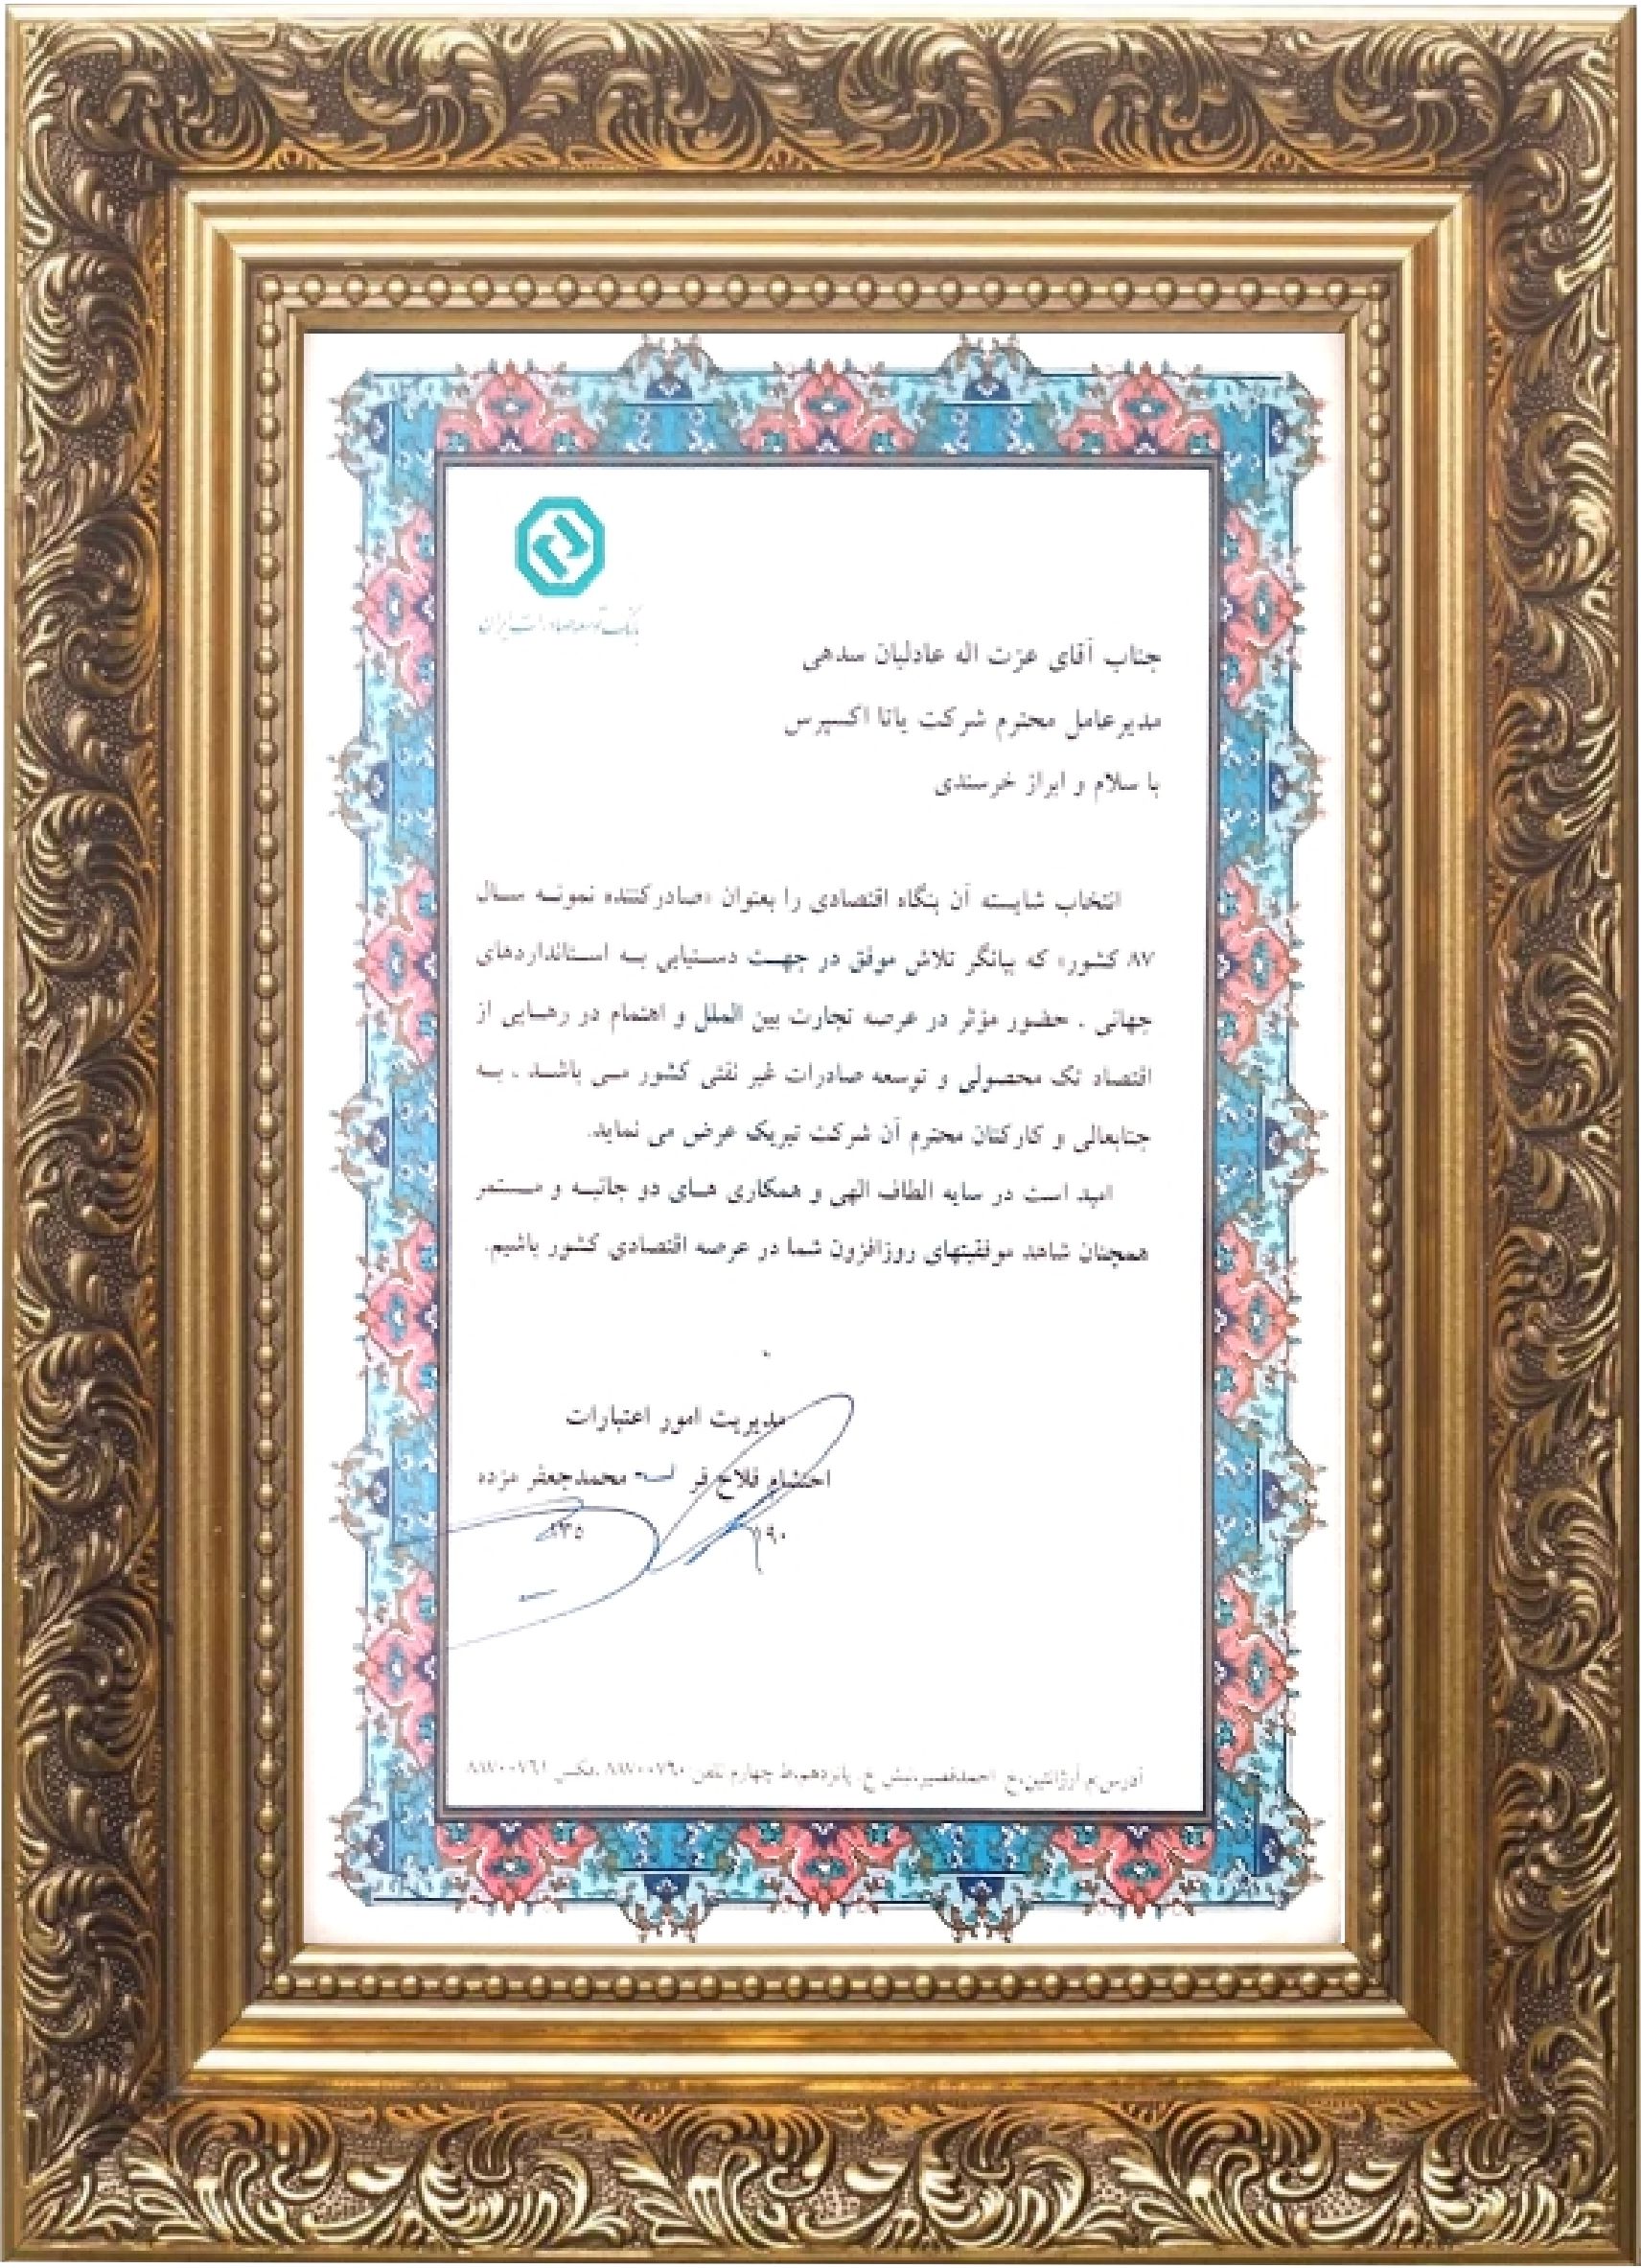 بانک توسعه صادرات ایران
جناب آقای عزت اله عادلیان سدهی
مدیرعامل محترم شرکت یاتا اکسپرس
با سلام و ابراز خرسندی
انتخاب شایسته آن بنگاه اقتصادی را بعنوان «صادرکننده نمونه سال
۸۷ کشور» که بیانگر تلاش موفق در جهت دستیابی به استانداردهای
جهانی ، حضور مؤثر در عرصه تجارت بین الملل و اهتمام در رهایی از
اقتصاد تک محصولی و توسعه صادرات غیر نفتی کشور می باشد ، به
جنابعالی و کارکنان محترم آن شرکت تبریک عرض می نماید.
امید است در سایه الطاف الهی و همکاری های دو جانبه و مستمر
همچنان شاهد موفقیتهای روزافزون شما در عرصه اقتصادی کشور باشیم.
مدیریت امور اعتبارات
احتشام فلاح فر محمدجعفر مژده
۸۳۵
آدرس:م آرژانتین،خ احمدقصیر،نبش خ. پانزدهم،ط چهارم تلفن